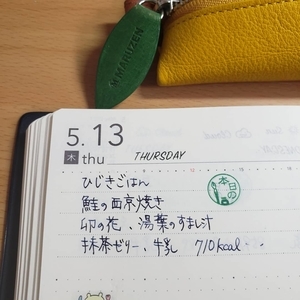 MARUZEN
5.13
木 thu
THURSDAY
本日の
ひじきごはん
鮭の西京焼き
卯の花、湯葉のすまし汁
抹茶ゼリー、牛乳 710kcal